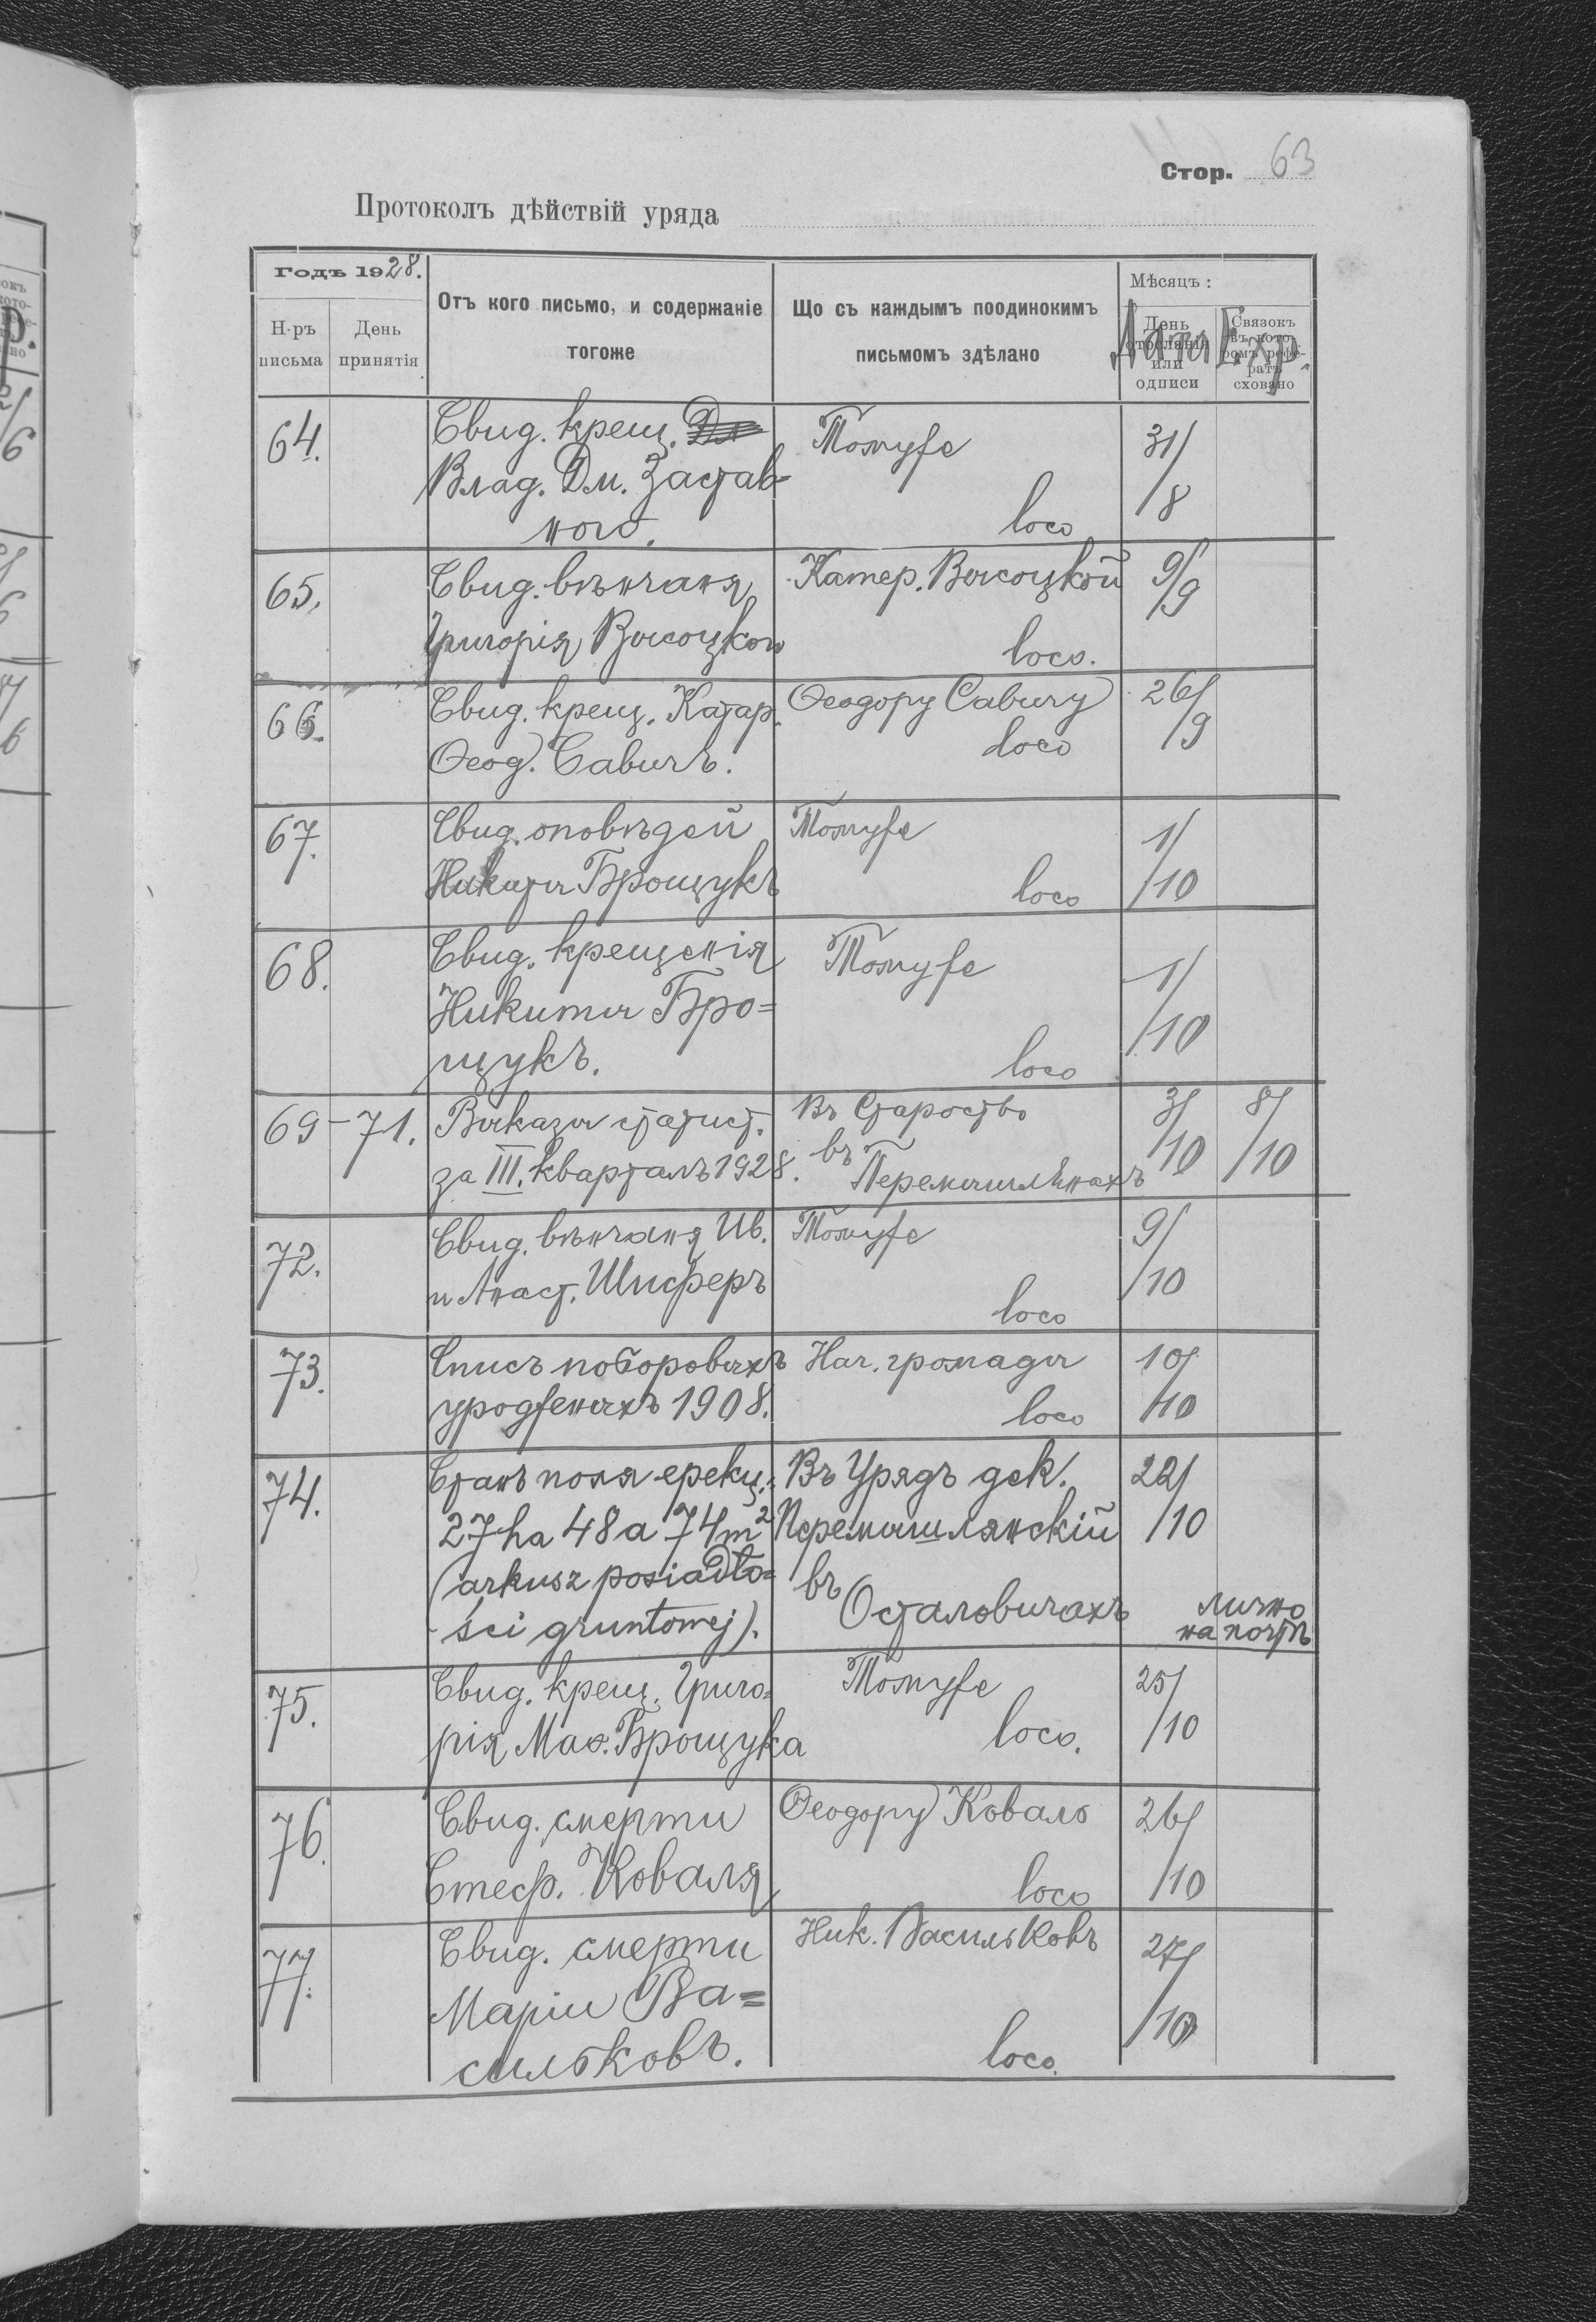 Стор. 63
Протоколъ дѣйствій уряда
Годъ 1928.
Н-ръ письма
День принятія
Отъ кого письмо, и содержаніе
тогоже
Що съ каждымъ поодинокимъ
письмомъ здѣлано
Мѣсяцъ :
День
отосланія
или
одписи
Дата
Связокъ
въ кото-
ромъ рефе-
ратъ
сховано
Exp.
64.
Свид. крещ.
Влад. Дм. Застав-
ного.
Томуже
loco
31/8
65.
Свид. вѣнчаня
Григорія Высоцкого
Катер. Высоцкой
loco.
9/9
66.
Свид. крещ. Катар.
Ѳеод. Савичъ.
Ѳеодору Савичу
loco
26/9
67.
Свид. оповѣдей
Никиты Брощукъ
Томуже
loco
1/10
68.
Свид. крещенія
Никиты Бро=
щукъ.
Томуже
loco
1/10
69-71.
Выказы статист.
за III. кварталъ 1928.
Въ Староство
въ Перемышлянахъ
3/10
8/10
72.
Свид. вѣнчаня Ив.
и Анаст. Шисферъ
Томуже
loco
9/10
73.
Списъ поборовыхъ
уродженыхъ 1908.
Нач. громады
loco
10/10
74.
Станъ поля ерекц.:
27 ha 48 a 74 m²
(arkusz posiadło=
ści gruntowej).
Въ Урядъ дек.
Перемышлянскій
въ Осталовичахъ
22/10
лично
на почтѣ
75.
Свид. крещ. Григо=
рія Мак. Брощука
Томуже
loco.
25/10
76.
Свид. смерти
Стеф. Коваля
Ѳеодору Коваль
loco
26/10
77.
Свид. смерти
Маріи Ва=
сильковъ.
Ник. Васильковъ
loco.
27/10